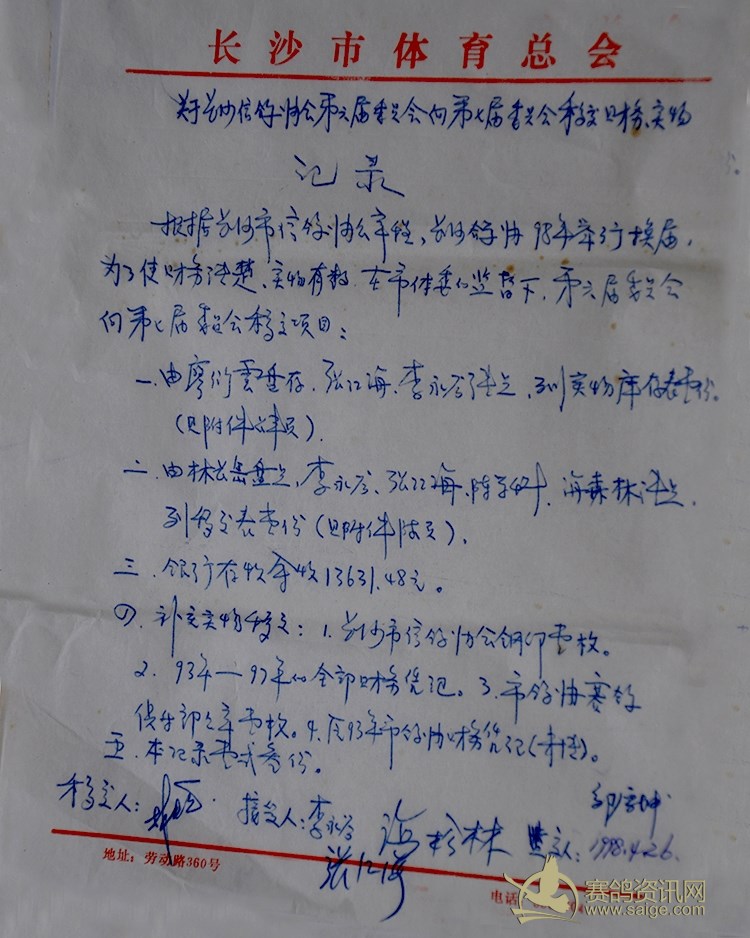 长沙市体育总会
关于长沙信鸽协会第六届委员会向第七届委员会移交财务、实物
记录
根据长沙市信鸽协会章程，长沙鸽协98年举行换届，
为了使财务清楚、实物有数，在市体委的监督下，第六届委员会
向第七届委员会移交项目：
一、由廖衍云盘存，张江海、李永谷清点，列实物库存表壹份。
（见附件 页）。
二、由林长岳盘点，李永谷、张江海、陈 、海森林清点，
列移交表壹份（见附件 页）。
三、银行存款余款13631.48元。
四、补充实物移交：1.长沙市信鸽协会钢印壹枚。
2.93年—97年的全部财务凭记。3.市鸽协赛鸽
俱乐部公章壹枚。4.反93年市鸽协财务凭记（未清）。
五、本记录壹式叁份。
移交人： 接交人：李永谷 监交人：1998.4.26.
张江海
地址：劳动路360号
电话
赛鸽资讯网
www.saige.com